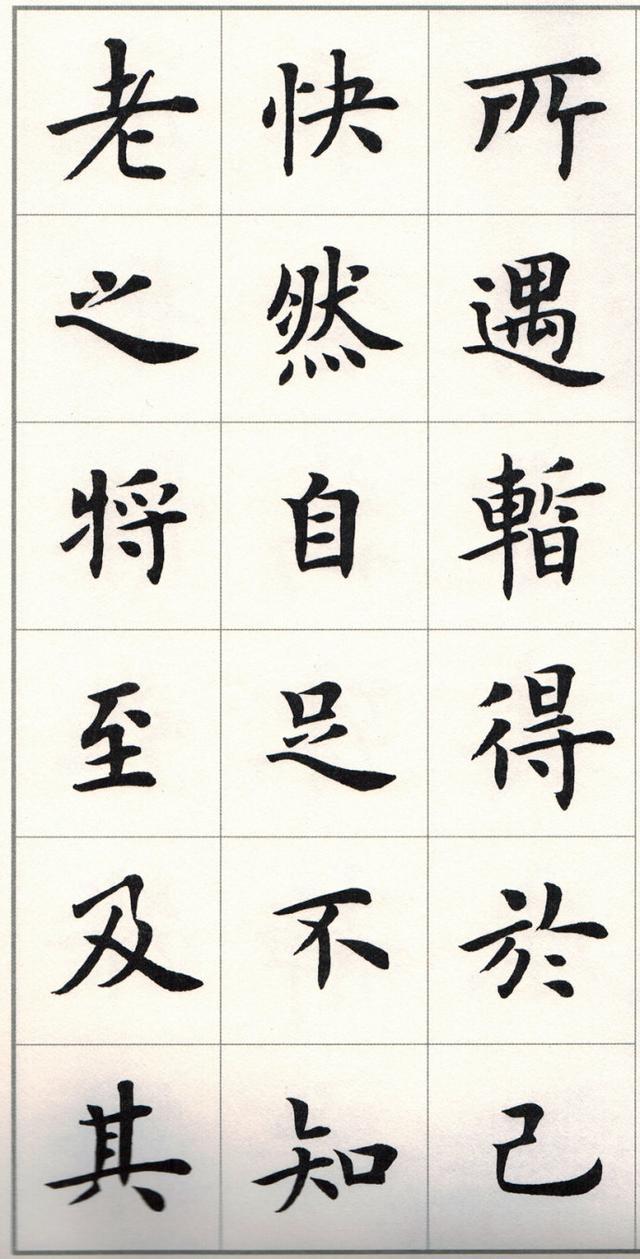 所遇暫得於己
快然自足不知
老之将至及其